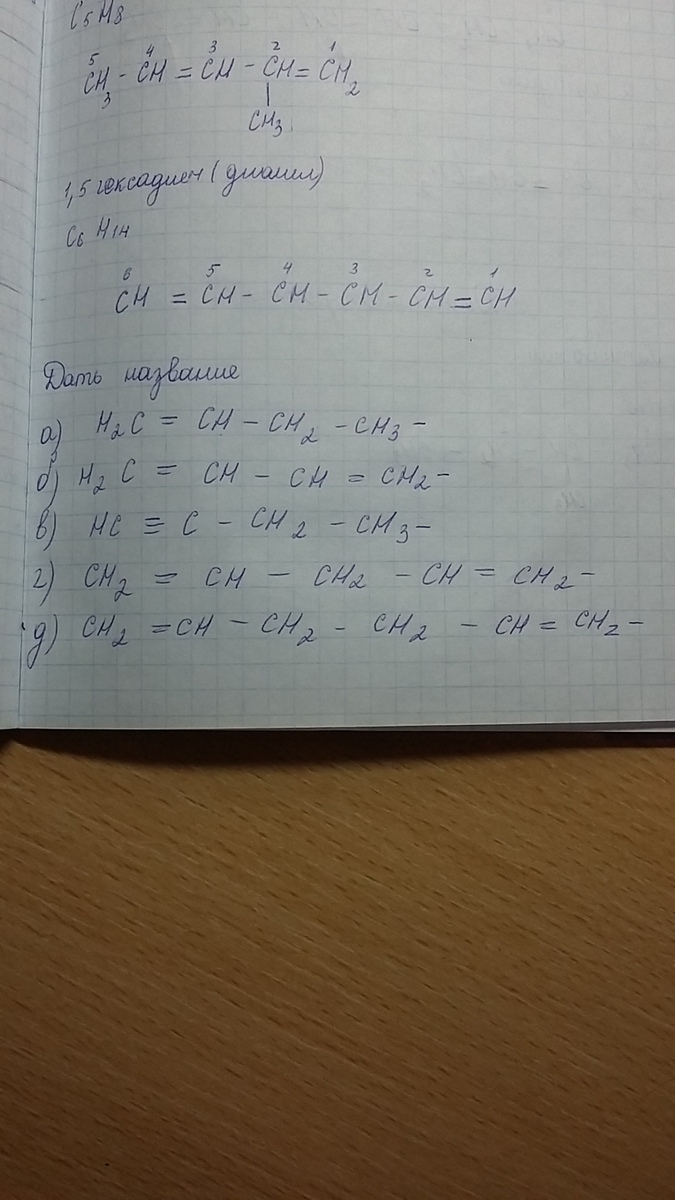 C5H8
5 4 3 2 1
CH3 - CH = CH - CH = CH2
|
CH3
1,5 гексадиен (диаллил)
C6 H14
6 5 4 3 2 1
CH = CH - CH - CH - CH = CH
Дать название
а) H2C = CH - CH2 - CH3 -
б) H2 C = CH - CH = CH2 -
в) HC ≡ C - CH2 - CH3 -
г) CH2 = CH - CH2 - CH = CH2 -
д) CH2 = CH - CH2 - CH2 - CH = CH2 -